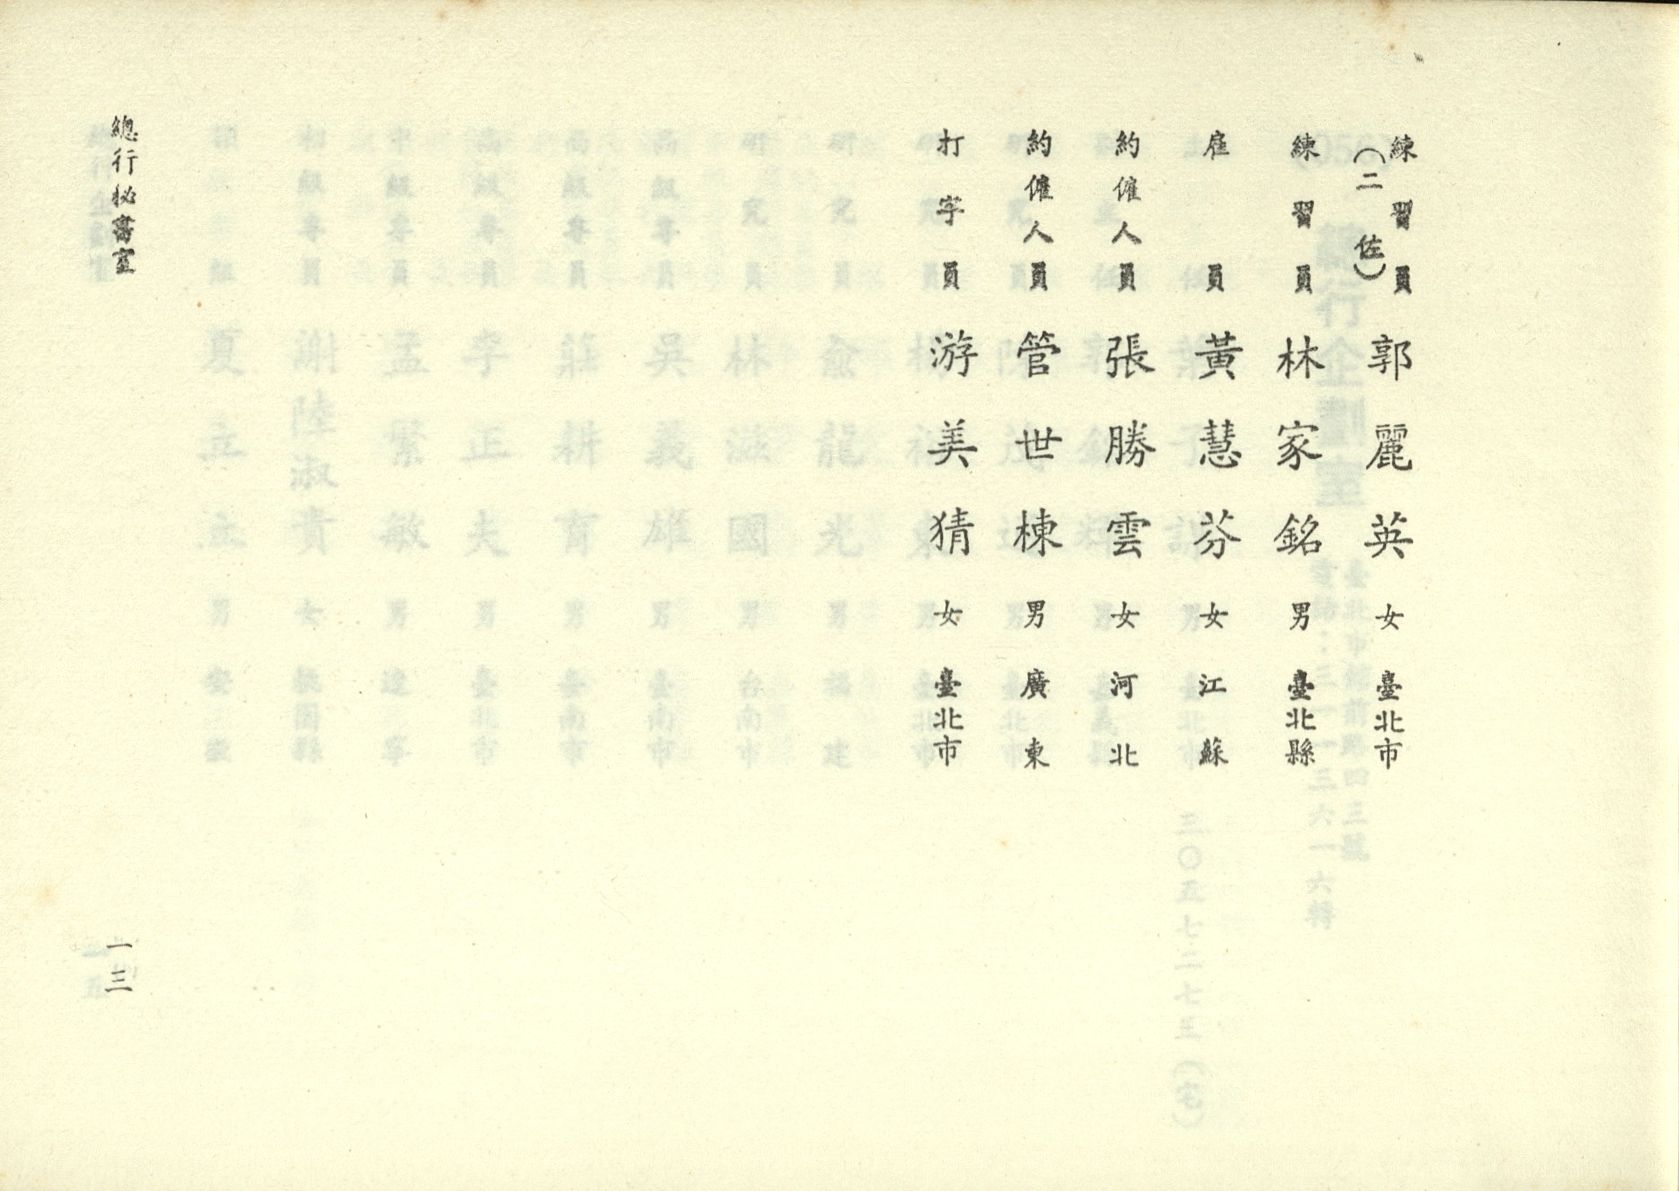 練習員（二佐） 郭麗英 女 臺北市
練習員 林家銘 男 臺北縣
雇員 黃慧芬 女 江蘇
約僱人員 張勝雲 女 河北
約僱人員 管世棟 男 廣東
打字員 游美猜 女 臺北市
總行秘書室
一三